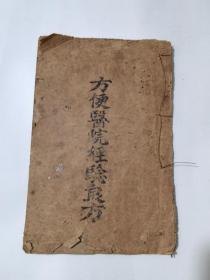 方便醫院經驗良方